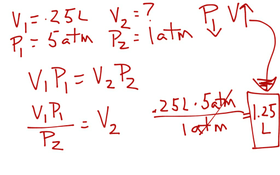 V₁ = .25L V₂ = ?
P₁ = 5atm P₂ = 1atm
P↓ V↑
V₁P₁ = V₂P₂
V₁P₁ / P₂ = V₂
.25L · 5atm / 1atm = 1.25 L